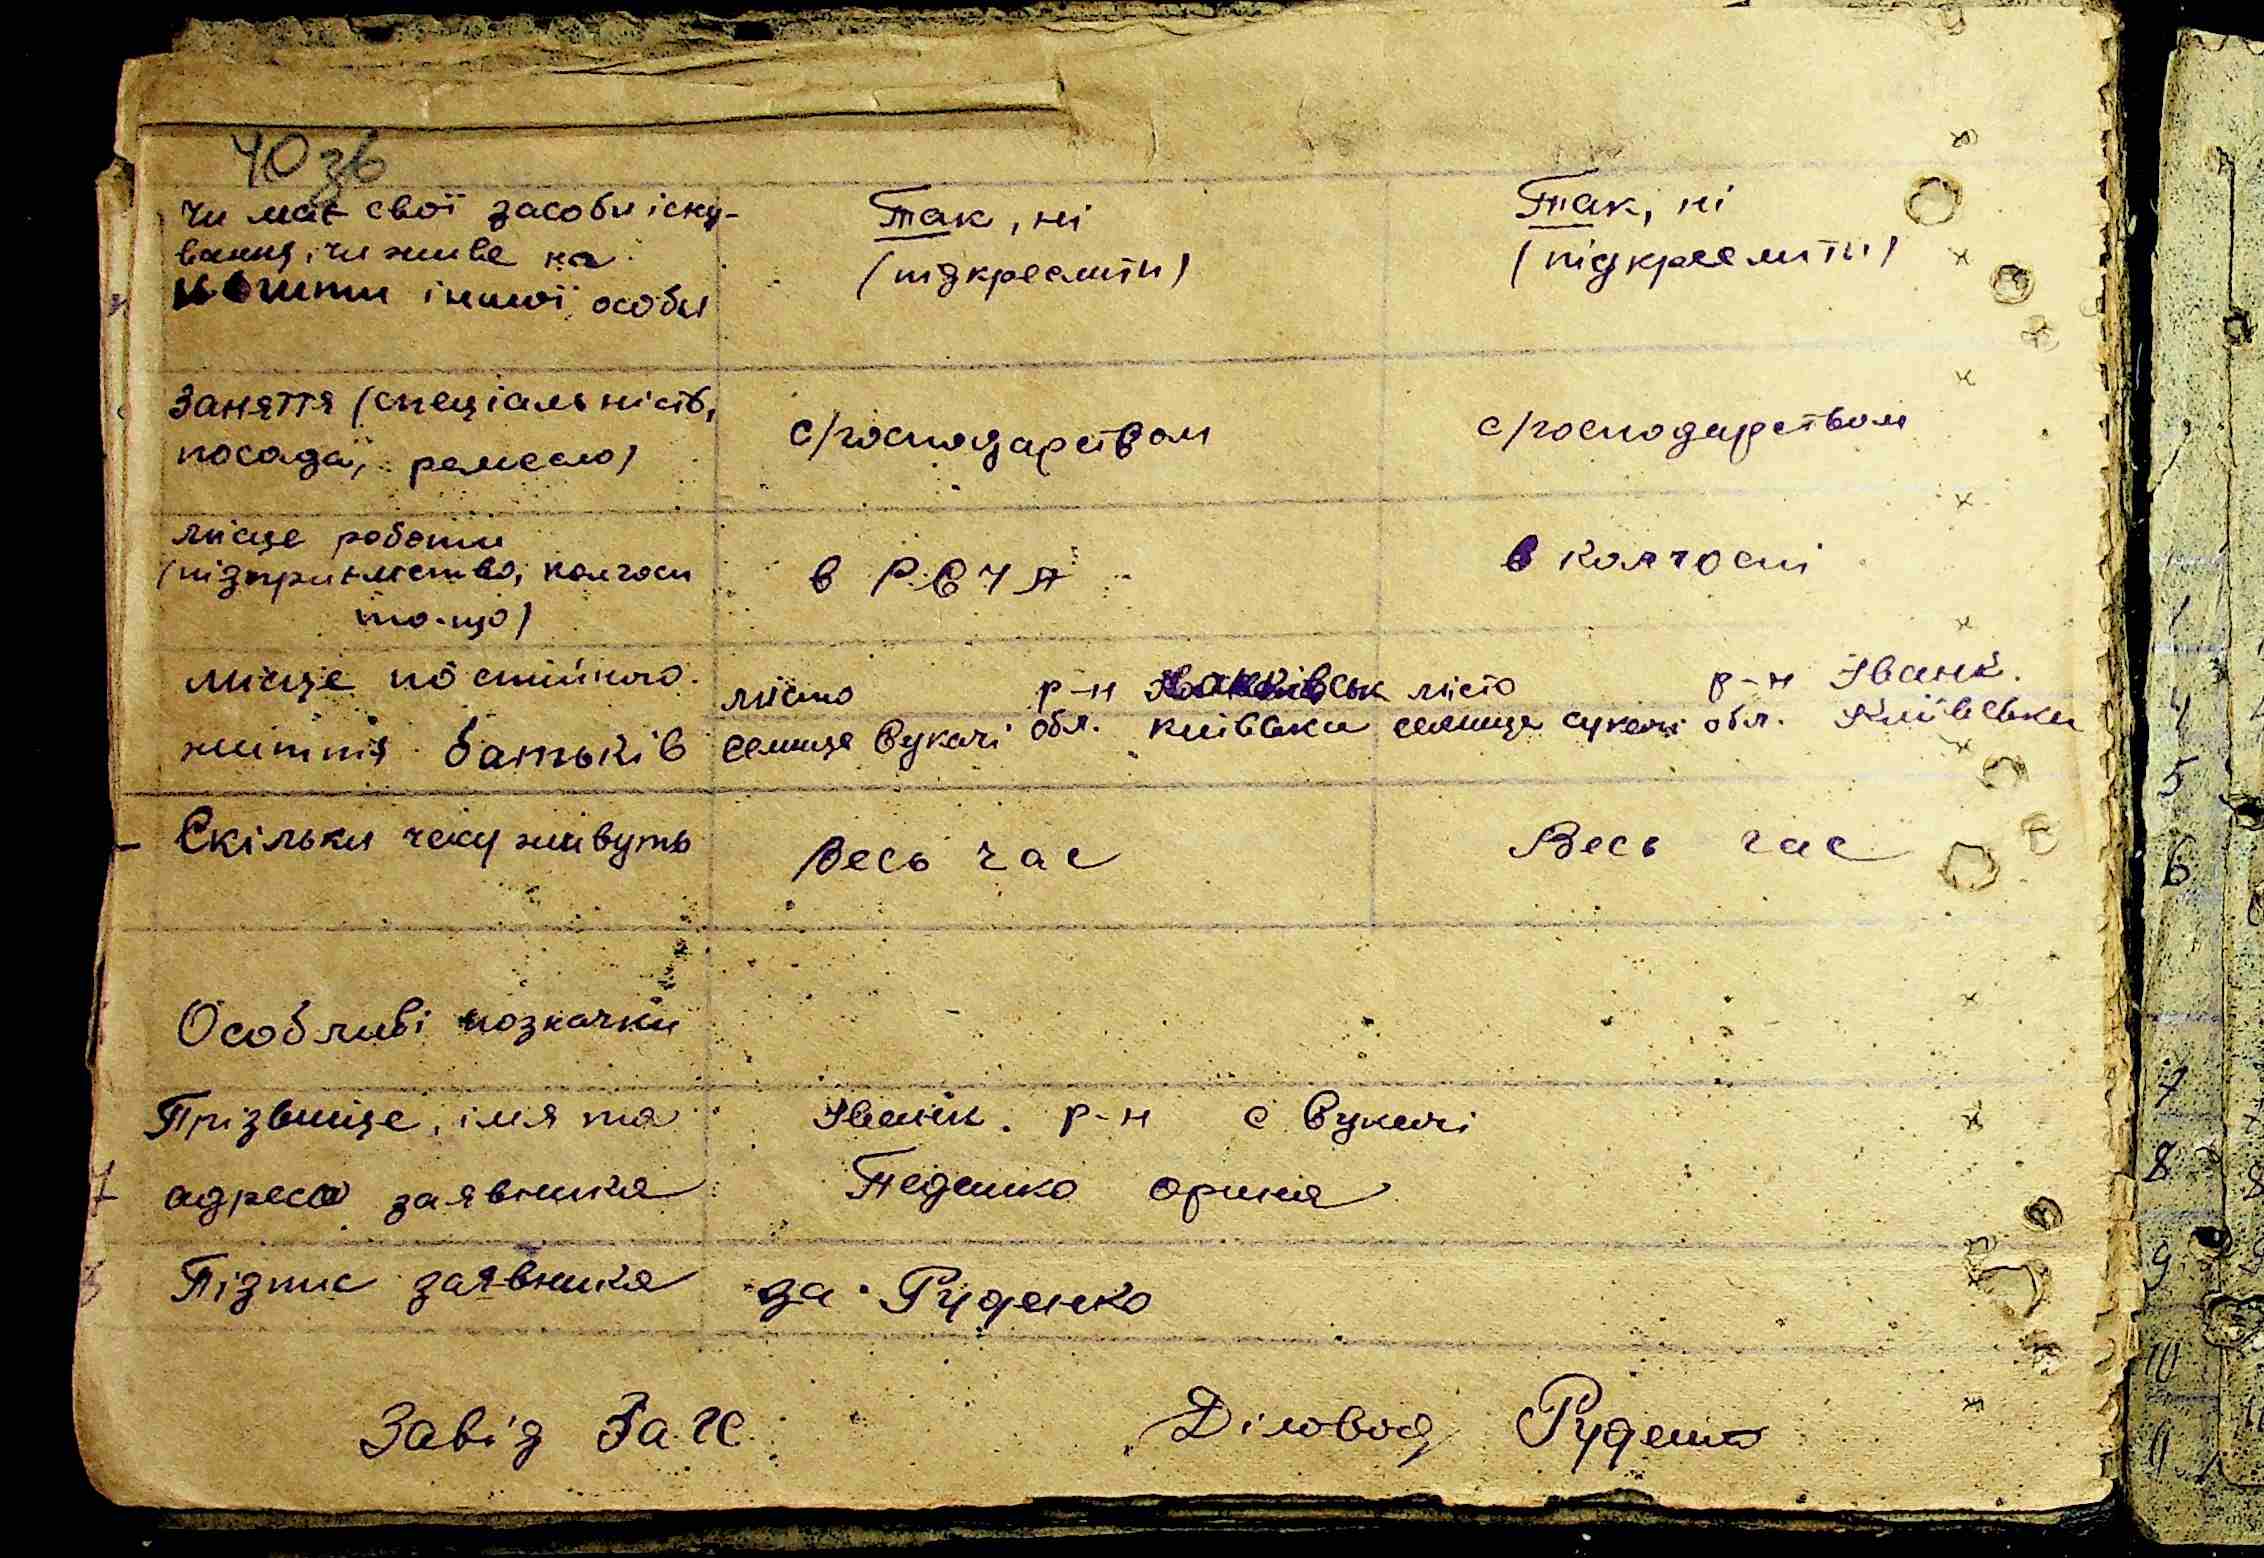 40 зв
Чи має свої засоби існу- Так, ні Так, ні
вання, чи живе на (підкреслити) (підкреслити)
кошти іншої особи
Заняття (спеціальність, с/господарством с/господарством
посада, ремесло)
Місце роботи в РСЧА в колгоспі
(підприємство, колгосп
то-що)
Місце постійного місто р-н місто р-н Іванк.
життя батьків селище Вукачі обл. київськи селище Сукачі обл. Київськи
Скільки часу живуть Весь час Весь час
Особливі позначки
Прізвище, імя та Іванк. р-н с Вукачі
адреса заявника Педешко Орина
Підпис заявника за Руденко
Завід Загс Діловод Руденко
5
6
7
8
9
10
11